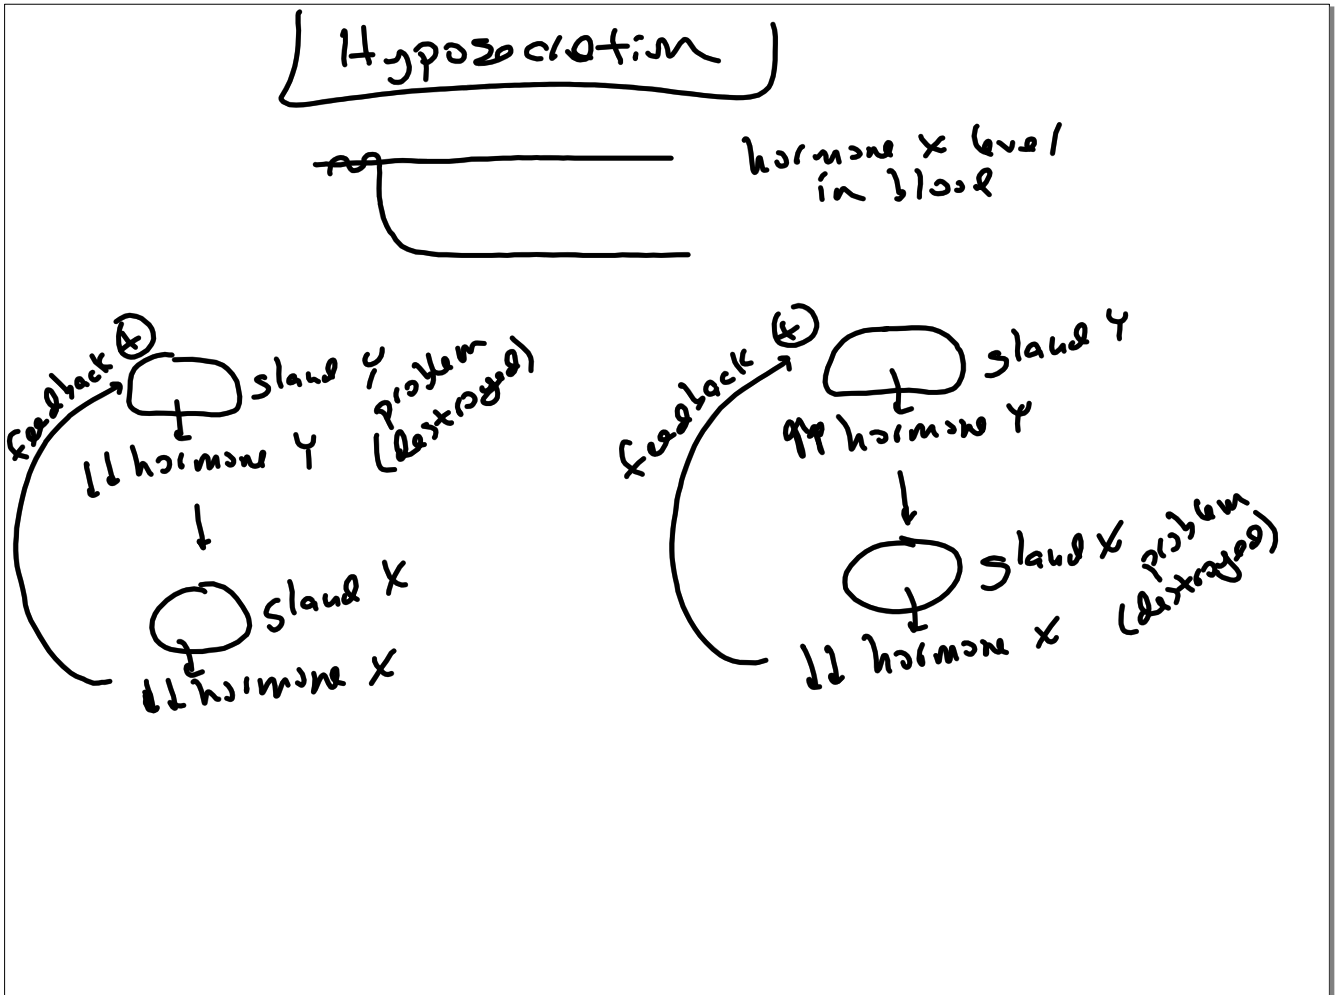 Hyposecretion
hormone X level
in blood
feedback
+
gland Y
problem
(destroyed)
↓↓ hormone Y
gland X
↓↓ hormone X
feedback
+
gland Y
↑↑ hormone Y
gland X
problem
(destroyed)
↓↓ hormone X